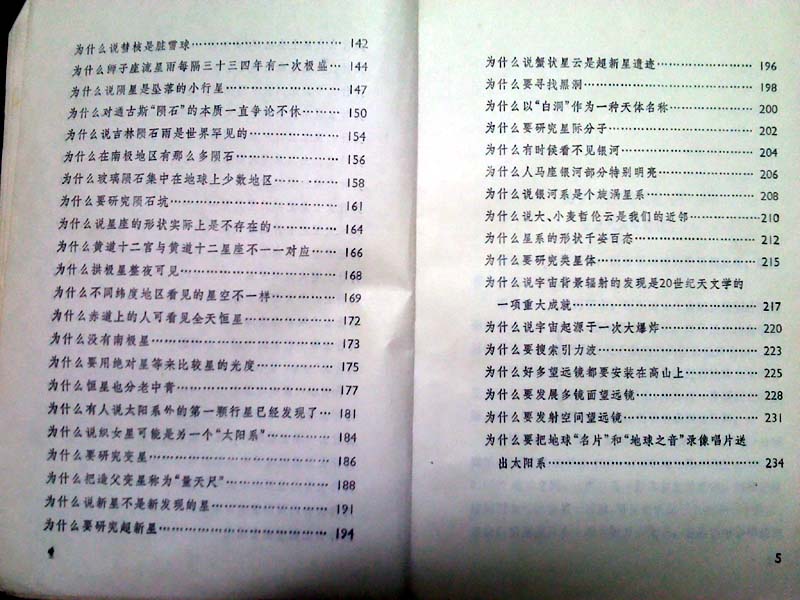 为什么说彗核是脏雪球…………………… 142
为什么狮子座流星雨每隔三十三四年有一次极盛… 144
为什么说陨星是坠落的小行星………… 147
为什么对通古斯“陨石”的本质一直争论不休…… 150
为什么说吉林陨石雨是世界罕见的………… 154
为什么在南极地区有那么多陨石………… 156
为什么玻璃陨石集中在地球上少数地区……… 158
为什么要研究陨石坑………………… 161
为什么说星座的形状实际上是不存在的……… 164
为什么黄道十二宫与黄道十二星座不一一对应…… 166
为什么拱极星整夜可见………………… 168
为什么不同纬度地区看见的星空不一样……… 169
为什么赤道上的人可看见全天恒星………… 172
为什么没有南极星…………………… 173
为什么要用绝对星等来比较星的光度………… 175
为什么恒星也分老中青………………… 177
为什么有人说太阳系外的第一颗行星已经发现了… 181
为什么说织女星可能是另一个“太阳系”……… 184
为什么要研究变星…………………… 186
为什么把造父变星称为“量天尺”…………… 188
为什么说新星不是新发现的星…………… 191
为什么要研究超新星…………………… 194
4
为什么说蟹状星云是超新星遗迹………… 196
为什么要寻找黑洞…………………… 198
为什么以“白洞”作为一种天体名称………… 200
为什么要研究星际分子………………… 202
为什么有时候看不见银河……………… 204
为什么人马座银河部分特别明亮………… 206
为什么说银河系是个旋涡星系…………… 208
为什么说大、小麦哲伦云是我们的近邻……… 210
为什么星系的形状千姿百态……………… 212
为什么要研究类星体………………… 215
为什么说宇宙背景辐射的发现是20世纪天文学的
一项重大成就…………………… 217
为什么说宇宙起源于一次大爆炸………… 220
为什么要搜索引力波………………… 223
为什么好多望远镜都要安装在高山上……… 225
为什么要发展多镜面望远镜……………… 228
为什么要发射空间望远镜……………… 231
为什么要把地球“名片”和“地球之音”录像唱片送
出太阳系…………………… 234
5